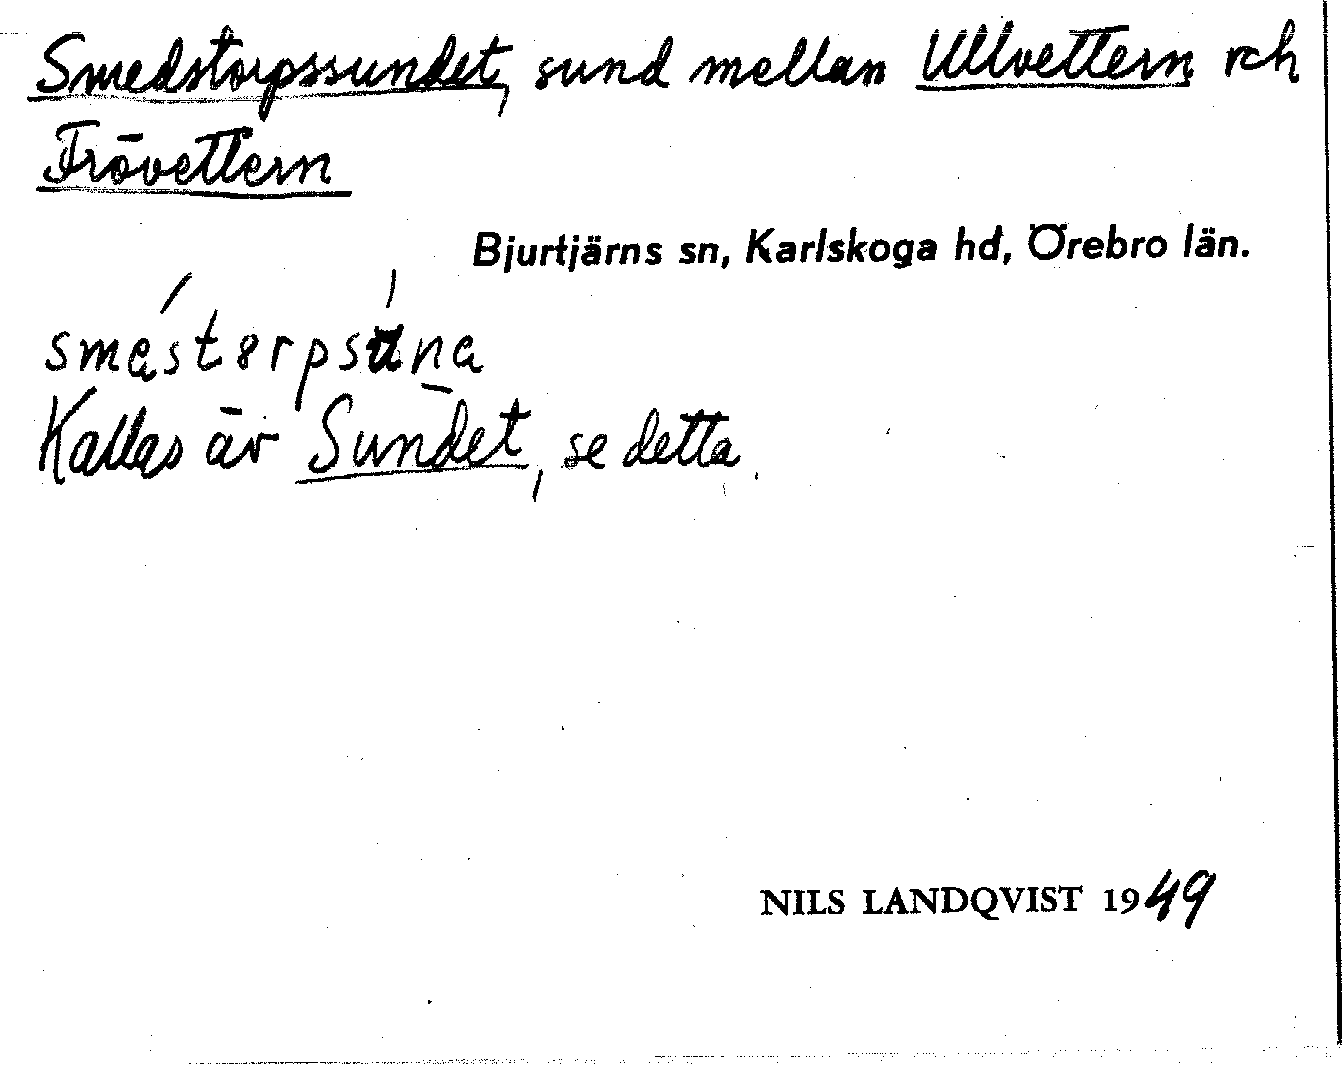 Smedstorpssundet, sund mellan Ullvettern och
Frövettern
Bjurtjärns sn, Karlskoga hd, Örebro län.
Kallas äv Sundet, se detta.
NILS LANDQVIST 1949